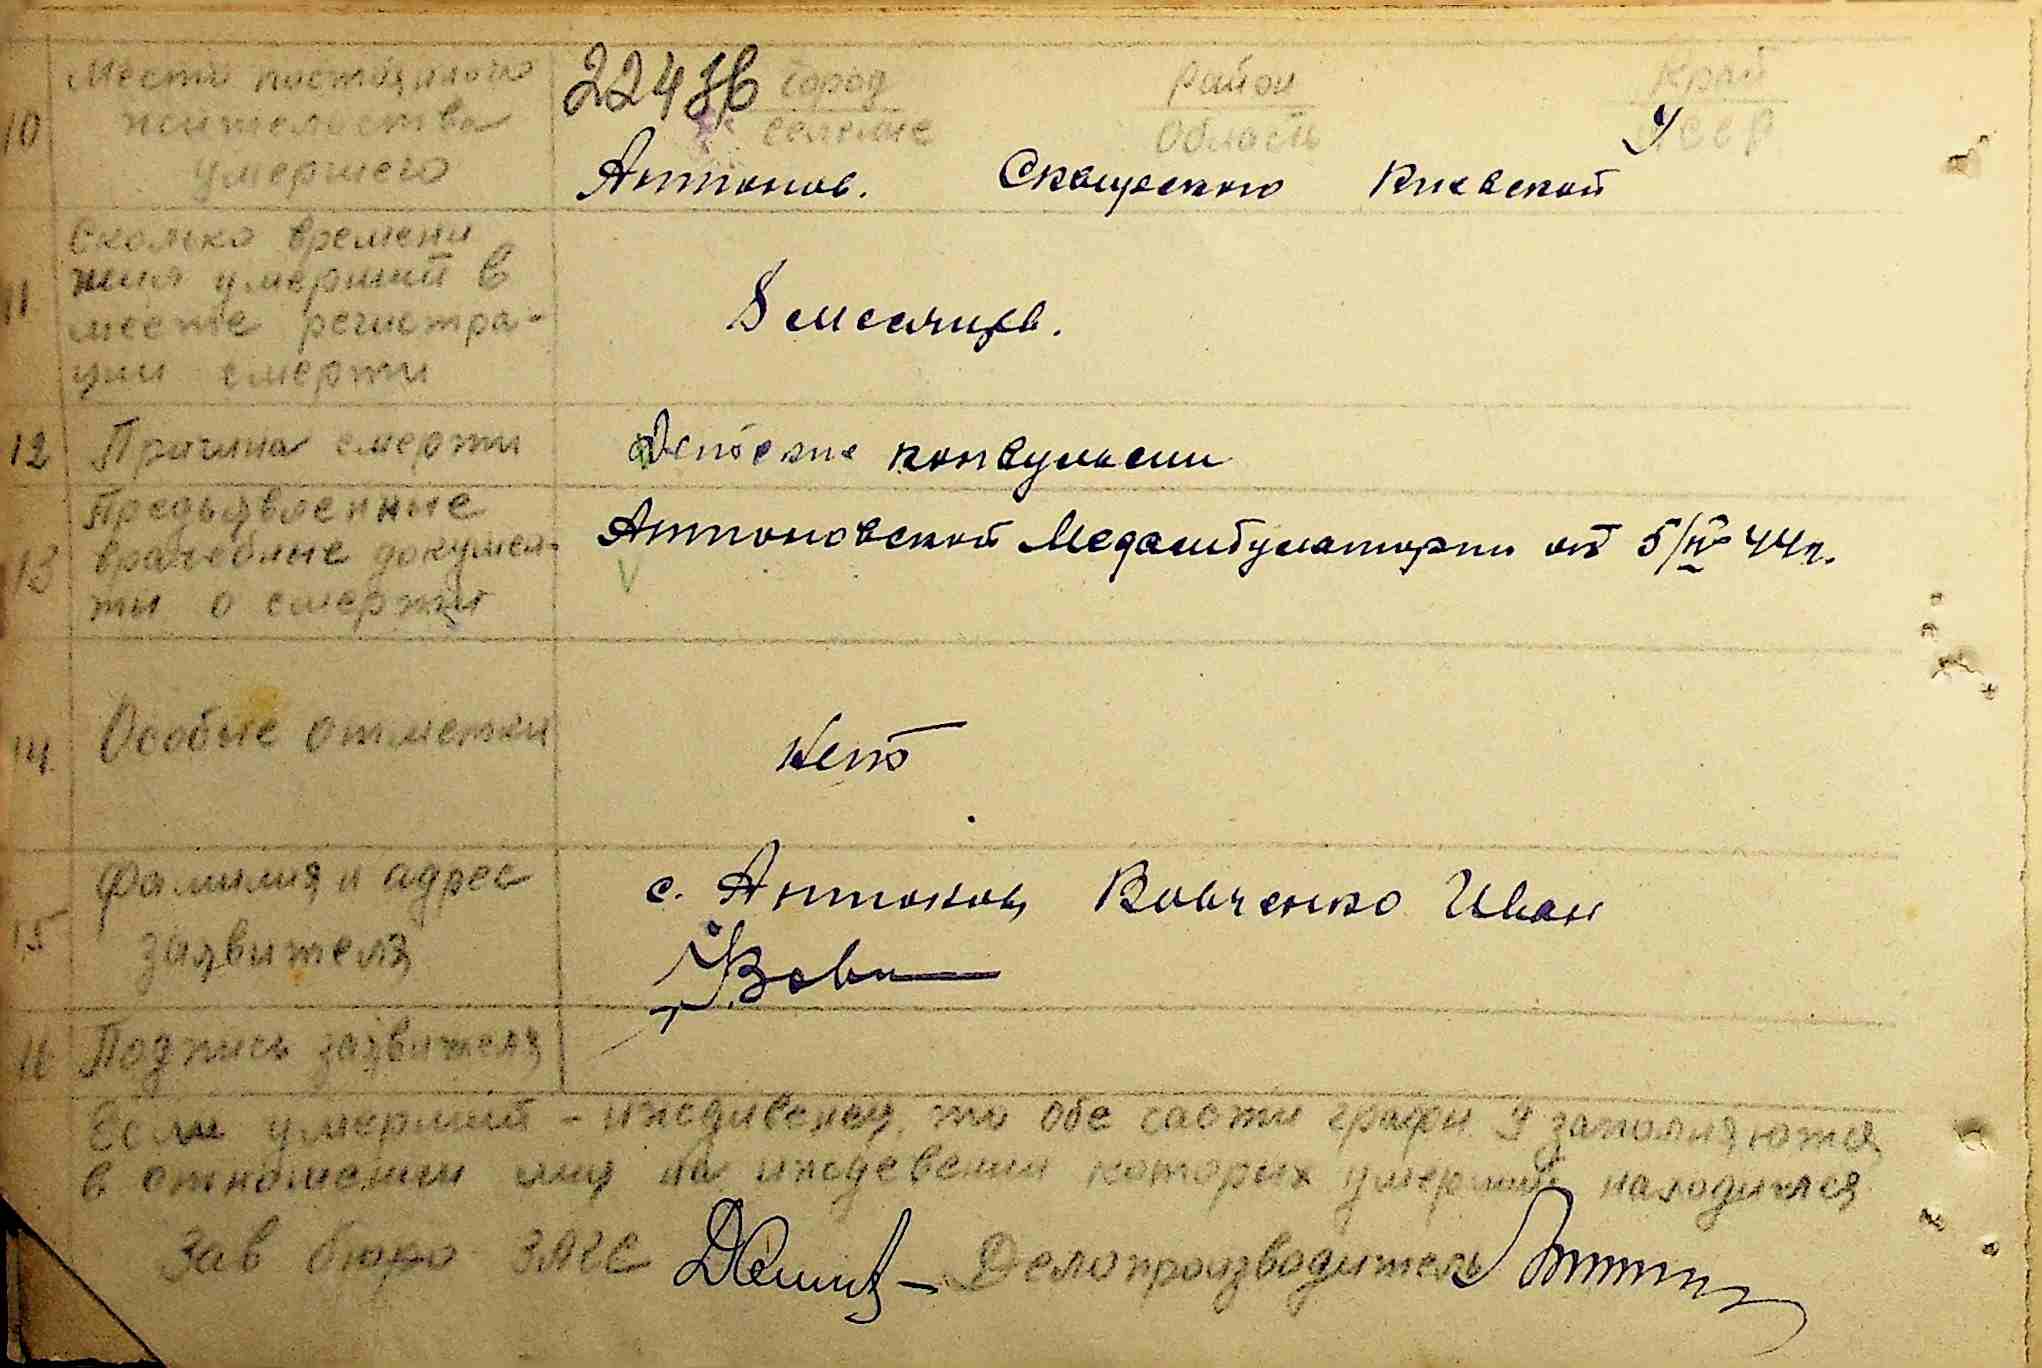 10 Место постоянного жительства умершего
22436 город селение
район область
край УССР
Антонов. Сквирского Киевской
11 Сколько времени жил умерший в месте регистрации смерти
8 месяцев.
12 Причина смерти
Детские конвульсии
13 Предъявленные врачебные документы о смерти
Антоновской Медамбулатории от 5/IV 44 г.
14. Особые отметки
Нет
15 Фамилия и адрес заявителя
с. Антонов, Вовченко Иван
16 Подпись заявителя
Если умерший - иждивенец, то обе части графы 9 заполняются
в отношении лиц на иждевении которых умерший находился
Зав бюро ЗАГС Делопроизводитель